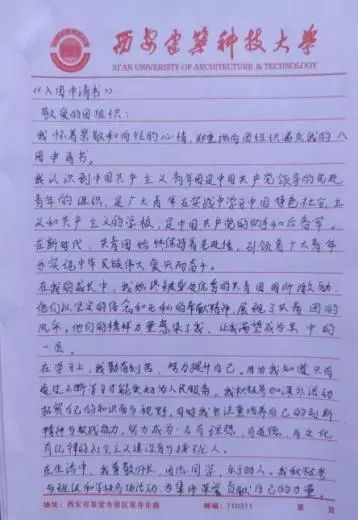 西安建筑科技大学
XI'AN UNIVERSITY OF ARCHITECTURE & TECHNOLOGY
《入团申请书》
敬爱的团组织：
我怀着崇敬和向往的心情，郑重地向团组织递交我的入
团申请书。
我认识到中国共产主义青年团是中国共产党领导的先进
青年的组织，是广大青年在实践中学习中国特色社会主
义和共产主义的学校，是中国共产党的助手和后备军。
在新时代，共青团始终保持着先进性，引领着广大青年
为实现中华民族伟大复兴而奋斗。
在我的成长中，我始终被身边优秀的共青团员所激励。
他们以坚定的信念和无私的奉献精神，展现了共青团的
风采。他们的精神力量感染了我，让我渴望成为其中的
一员。
在学习上，我勤奋刻苦，努力提升自己。因为我知道只有
通过不断学习才能更好为人民服务。我积极参加课外活动
拓宽自己的知识面与视野，同时我也注重培养自己的创新
精神与实践能力，努力成为一名有理想，有道德，有文化
有纪律的社会主义建设者与接班人。
在生活中，我尊敬师长，团结同学，乐于助人。我积极参
与班级和学校各项活动，为集体荣誉贡献自己的力量。
地址：西安市碑林区雁塔路 邮编：710311 第 页